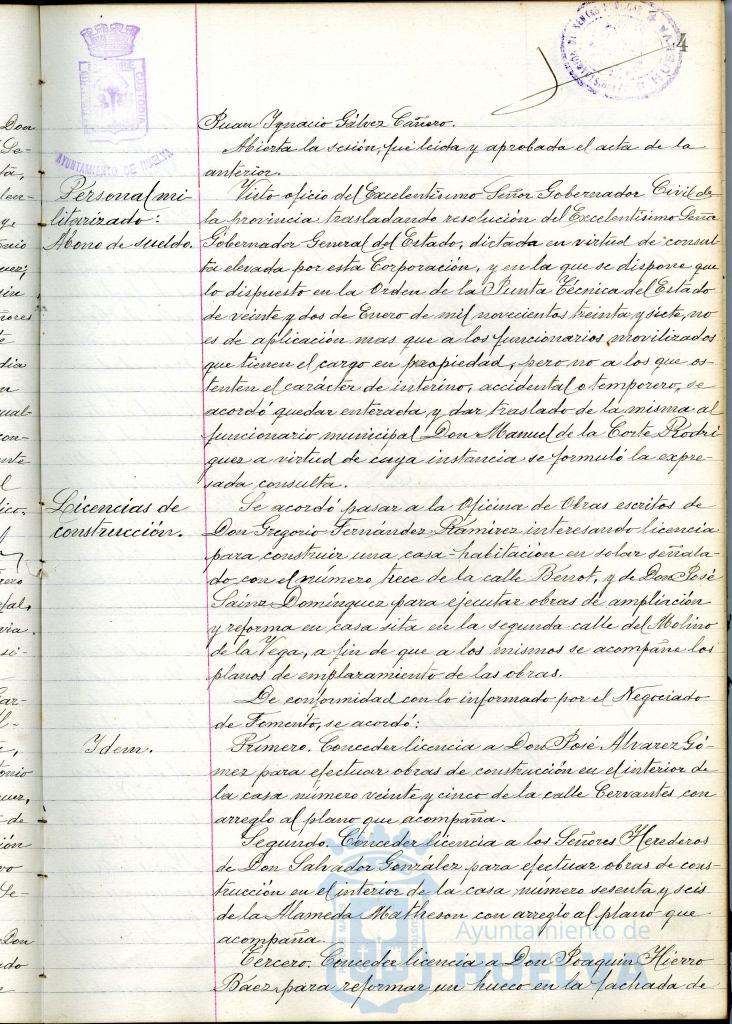 4
AYUNTAMIENTO DE HUELVA
Juan Ignacio Gálvez Cañero.
Abierta la sesión, fue leida y aprobada el acta de la
anterior.
Personal mi
litarizado:
Abono de sueldo.
Visto oficio del Excelentísimo Señor Gobernador Civil de
la provincia trasladando resolución del Excelentísimo Señor
Gobernador General del Estado, dictada en virtud de consul
ta elevada por esta Corporación, y en la que se dispone que
lo dispuesto en la Orden de la Junta Técnica del Estado
de veinte y dos de Enero de mil novecientos treinta y siete, no
es de aplicación mas que a los funcionarios movilizados
que tienen el cargo en propiedad, pero no a los que os-
tenten el carácter de interino, accidental o temporero, se
acordó quedar enterada y dar traslado de la misma al
funcionario municipal Don Manuel de la Corte Rodrí
guez a virtud de cuya instancia se formuló la expre-
sada consulta.
Licencias de
construcción.
Se acordó pasar a la Oficina de Obras escritos de
Don Gregorio Fernández Ramírez interesando licencia
para construir una casa-habitación en solar señala-
do con el número trece de la calle Benot, y de Don José
Sáinz Domínguez para ejecutar obras de ampliación
y reforma en casa sita en la segunda calle del Molino
de la Vega, a fin de que a los mismos se acompañe los
planos de emplazamiento de las obras.
De conformidad con lo informado por el Negociado
de Fomento, se acordó:
Idem.
Primero. Conceder licencia a Don José Alvarez Gó-
mez para efectuar obras de construcción en el interior de
la casa número veinte y cinco de la calle Cervantes con
arreglo al plano que acompaña.
Segundo. Conceder licencia a los Señores Herederos
de Don Salvador González para efectuar obras de cons-
trucción en el interior de la casa numero sesenta y seis
de la Alameda Matheson con arreglo al plano que
acompaña.
Tercero. Conceder licencia a Don Joaquin Hierro
Baez para reformar un hueco en la fachada de
Ayuntamiento de
HUELVA